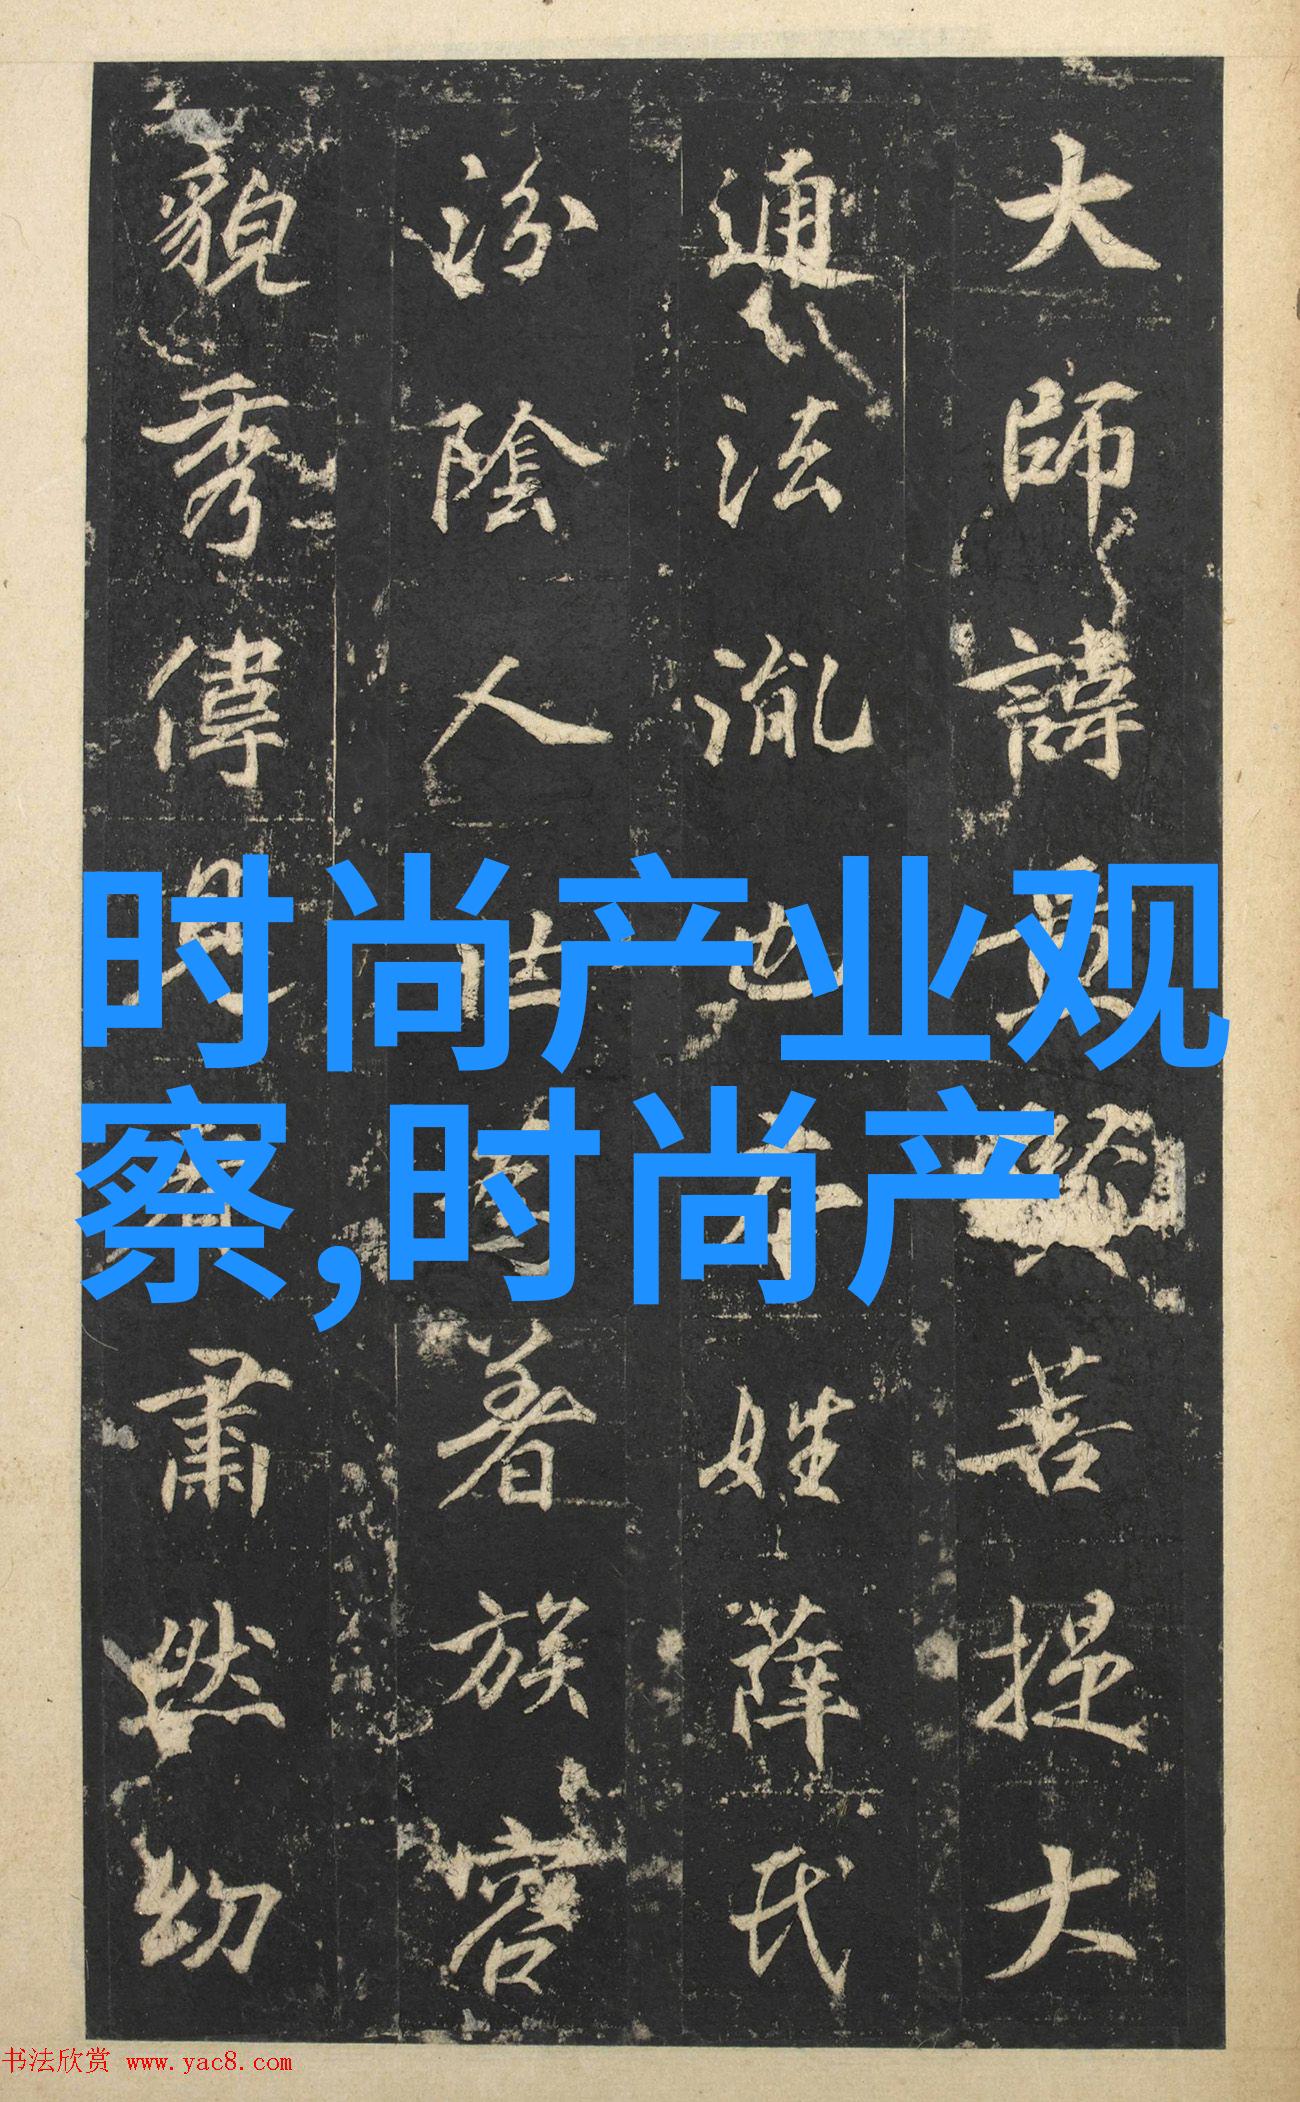 大師諱菩提大
通法也本姓薛氏
汾陰人著族容
貌秀偉見肅然幼
时尚产业观
察,时尚产
书法欣赏 www.yac8.com